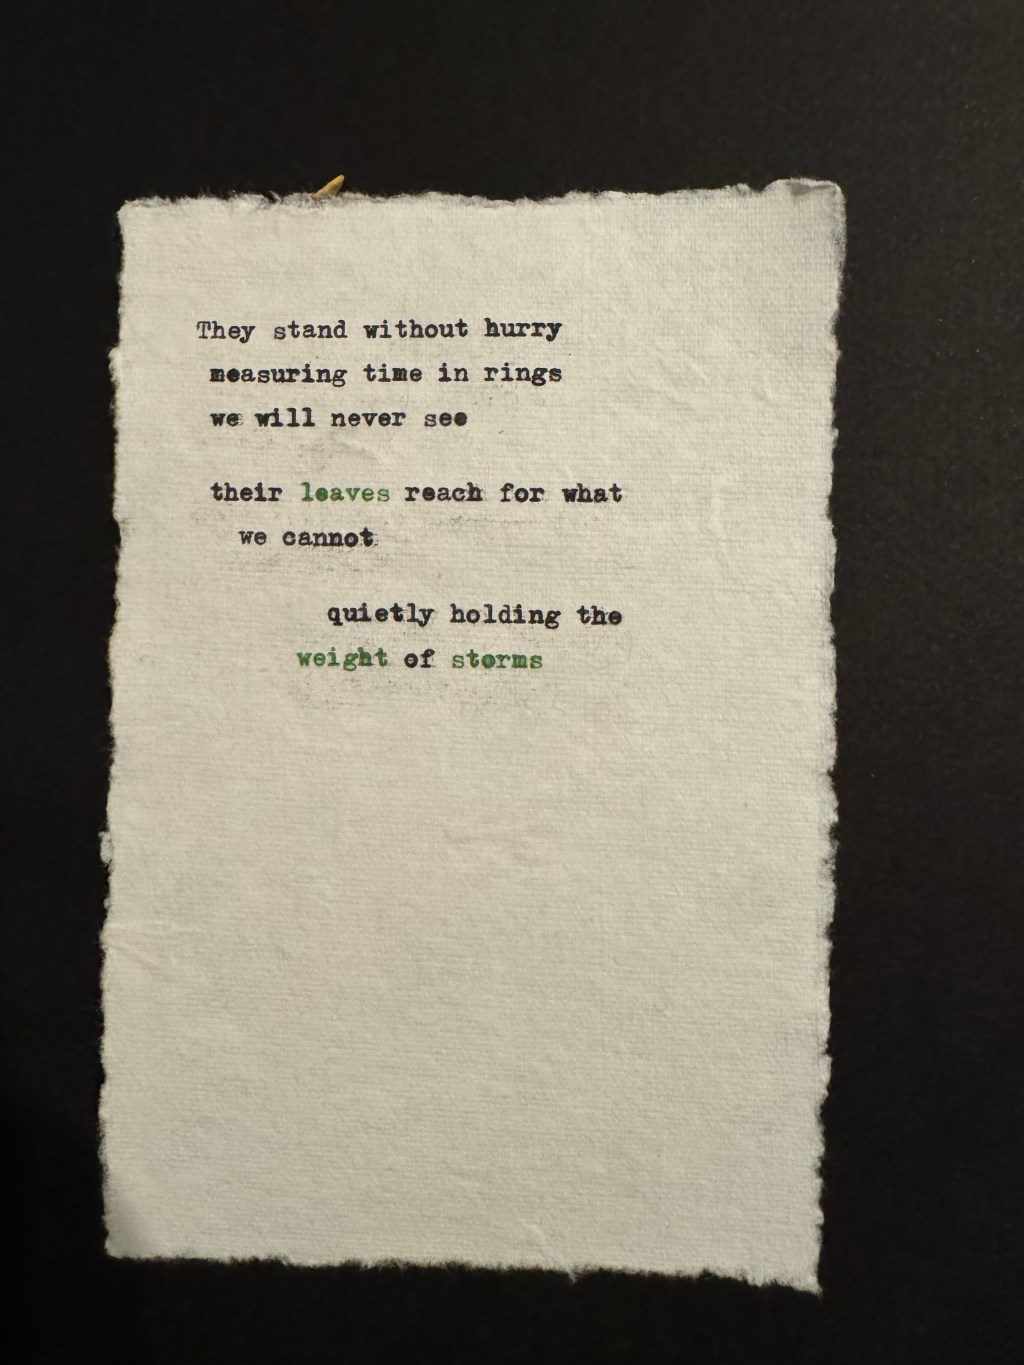 They stand without hurry
measuring time in rings
we will never see
their leaves reach for what
we cannot
quietly holding the
weight of storms